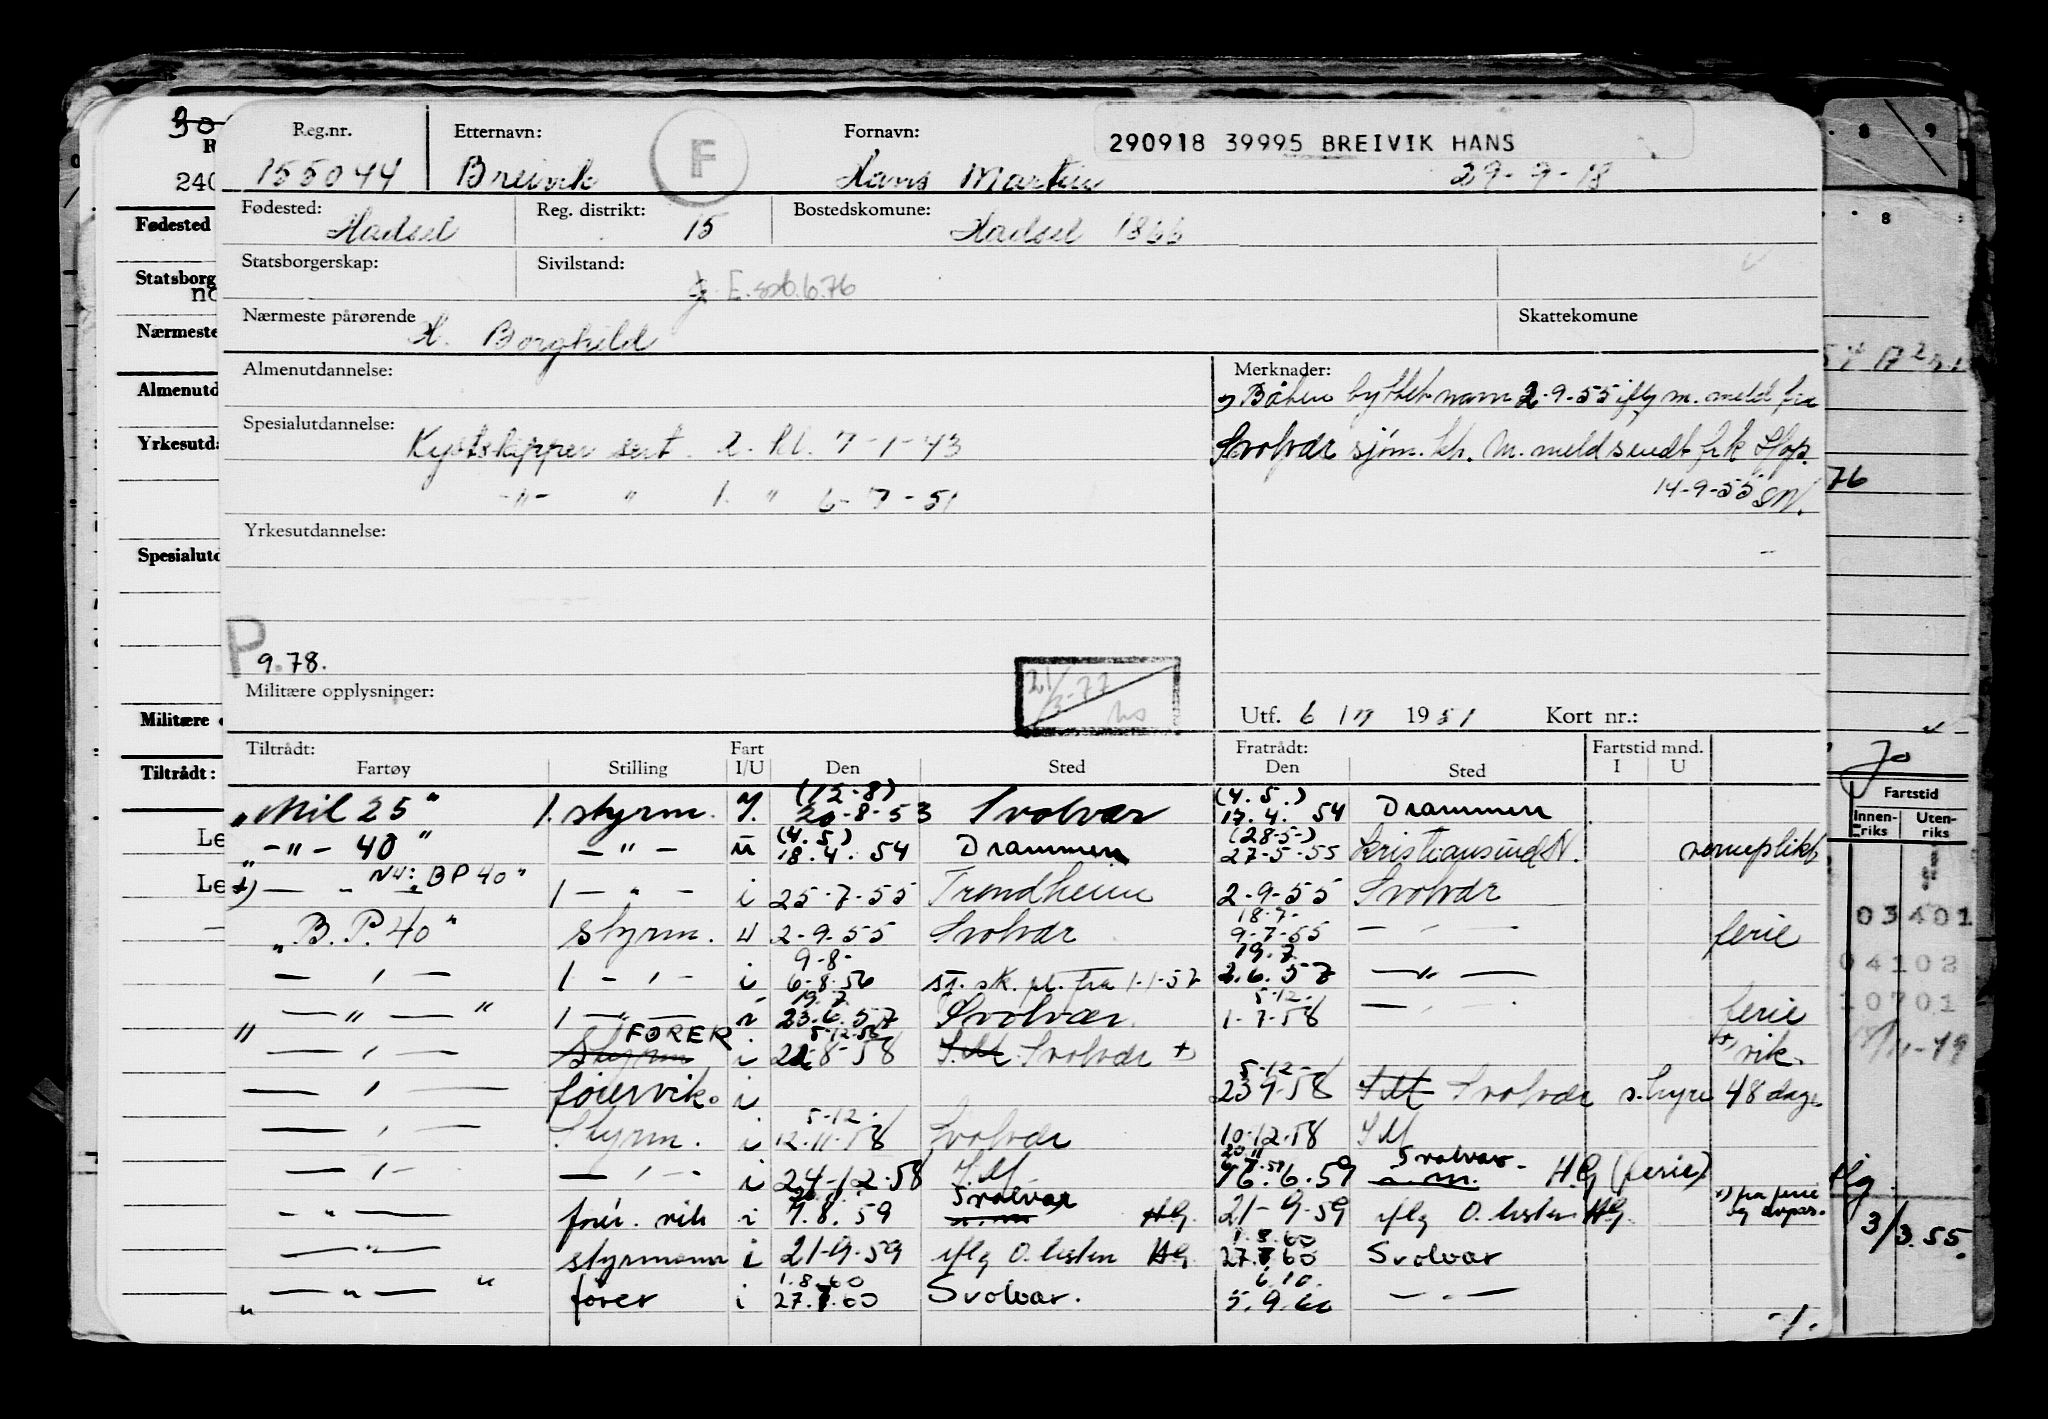 Reg.nr. Etternavn: F Fornavn: 290918 39995 BREIVIK HANS
155044 Breivik Hans Martin 29-9-18
Fødested: Hadsel Reg. distrikt: 15 Bostedskomune: Hadsel 1866
Statsborgerskap: Sivilstand:
Nærmeste pårørende H. Borghild Skattekomune
Almenutdannelse: Merknader:
Båten byttet navn 2-9-55 iflg m. meld fra
Spesialutdannelse: Kystskipper sert. 2. kl. 7-1-43
Svolvær sjøm. kt. M. meld sendt
14-9-55 SN.
-"- " 1. " 6-7-51
Yrkesutdannelse:
P 9.78.
Militære opplysninger: 21/3-77
Utf. 6/7 1951 Kort nr.:
Tiltrådt: Fart Fratrådt: Fartstid mnd.
Fartøy Stilling I/U Den Sted Den Sted I U
(12-8) (4.5.)
"Mil 25" 1. styrm. 20-8-53 Svolvær 17.4. 54 Drammen
(4.5) (28-5-)
"-"- 40" -"- u 18.4. 54 Drammen 27-5-55 Kristiansund N. verneplikt
Nu: "BP 40"
x) — " 1 — " — i 25-7-55 Trondheim 2-9-55 Svolvær
18-7-
"B.P. 40" styrm. u 2-9-55 Svolvær 9-7-55 — " — ferie
9-8- 19.7
— " — 1 — " — i 6-8-56 sj. sk. pl. fra 1-1-57 2.6.57 — " —
19.7 5-12-
— " — " 1 — " — 23.6.57 Svolvær 1-7-58 — " — ferie
FØRER 5-12-58
" — " — styrm i 22-8-58 Svolvær +) +) vik.
5-12-
— " — førervik. i 23-9-58 Svolvær styrm 48 dage
5-12-
— " — Styrm. i 12-11-58 Svolvær 10-12-58
20.11
— " — — " — i 24-12-58 16.6.59 Svolvær. HG (ferie)
— " — fører. vik i 7.8.59 Svolvær HG. 21-9-59 iflg O. listen HG. x) fra ferie og avspas.
1.8.60
— " — styrmann i 21-9-59 iflg O. listen HG 27.7.60 Svolvær
1.8.60 6.10.
" — " — " fører i 27.7.60 Svolvær. 5.9.60 — " —
-/.
240
Fødested
Statsborg
no
Nærmeste
Almenutd
Yrkesutda
Spesialutd
Militære
Tiltrådt:
Le
Le
8 9
8
76
Jo
Fartstid
Innen-riks Uten-riks
03401
04102
10701
3/3.55.